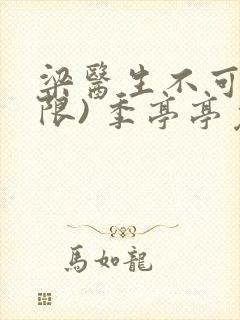 梁醫生不可
限) 季亭亭
馬如龍